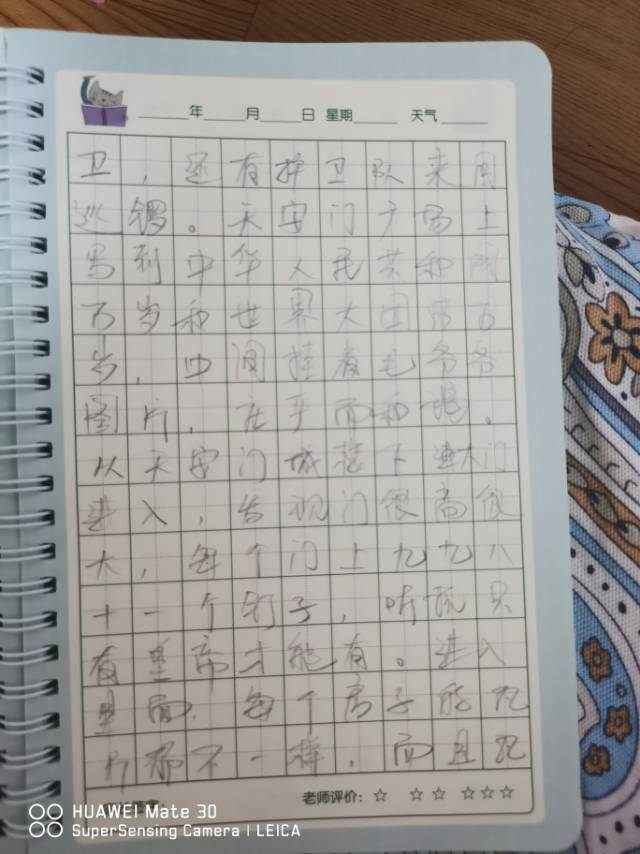 年 月 日 星期 天气
卫，还有护卫队来回
巡逻。天安门广场上
写到中华人民共和国
万岁和世界大团 万
岁，中间挂着毛爷爷
图片，在平面和 。
从天安门城楼下 大门
进入，发现门很高很
大，每个门上九九八
十一个钉子，听说只
有皇帝才能有。进入
里面，每个房子
片都不一样，而且
老师评价：☆ ☆☆ ☆☆☆
HUAWEI Mate 30
SuperSensing Camera | LEICA